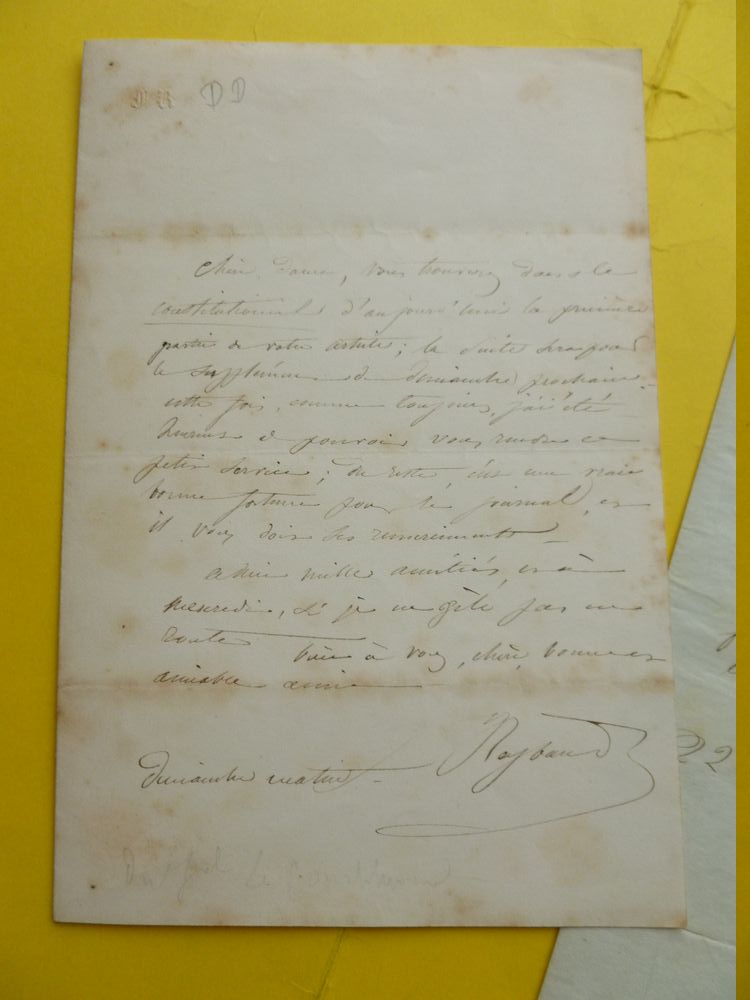 DD
chère Dame, vous trouverez dans le
constitutionnel d'aujourd'hui la première
partie de votre article; la suite sera pour
le supplément de dimanche prochain.
cette fois, comme toujours, j'ai été
heureux de pouvoir vous rendre ce
petit service; du reste, c'est une vraie
bonne fortune pour le journal, et
il vous doit ses remerciements –
adieu mille amitiés, et à
mercredi, si je ne gèle pas en
route
bien à vous, chère, bonne et
aimable amie
Reybaud
dimanche matin –